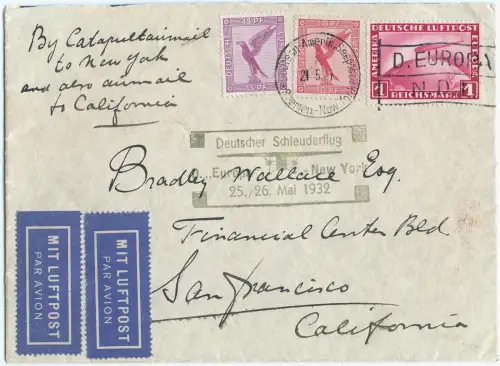 By Catapultairmail
to New York
and also airmail
to California
DEUTSCHE
15 PF
15 PF
10 PF
DEUTSCHE LUFTPOST
EUROPA
AMERIKA
1 REICHSMARK 1
D. EUROPA
N.D.
Bremen-New
Deutscher Schleuderflug
Europa New York
25./26. Mai 1932
Bradley Wallace Esq.
Financial Center Bld
San Francisco
California
MIT LUFTPOST
PAR AVION
MIT LUFTPOST
PAR AVION